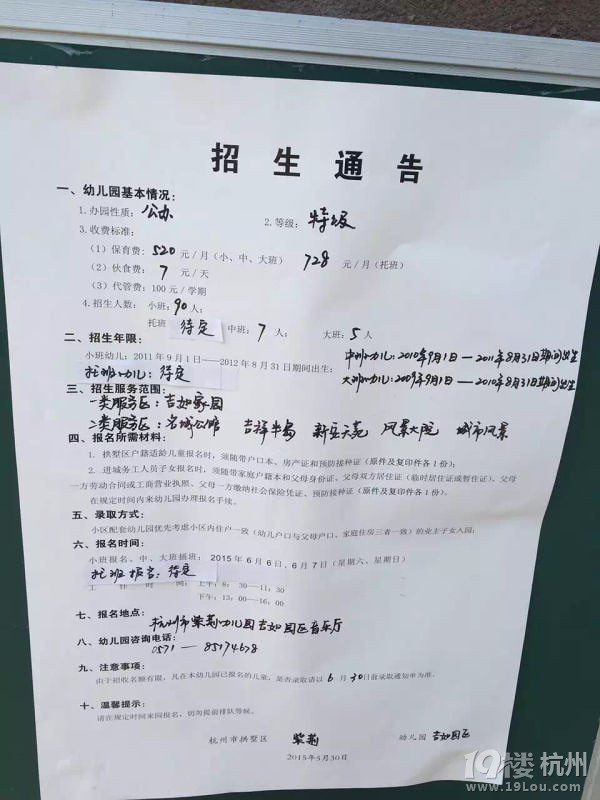 招生通告
一、幼儿园基本情况：
1.办园性质：公办 2.等级：特级
3.收费标准：
（1）保育费：520元/月（小、中、大班） 728元/月（托班）
（2）伙食费：7元/天
（3）代管费：100元/学期
4.招生人数：小班：90人；
托班 待定 中班：7人； 大班：5人
二、招生年限：
小班幼儿：2011年9月1日——2012年8月31日期间出生； 中班幼儿：2010年9月1日——2011年8月31日期间出生
托班幼儿：待定 大班幼儿：2009年9月1日——2010年8月31日期间出生
三、招生服务范围：
一类服务区：吉如家园
二类服务区：名城公馆 吉祥半岛 新巨天苑 风景大院 城市风景
四、报名所需材料：
1. 拱墅区户籍适龄儿童报名时，须随带户口本、房产证和预防接种证（原件及复印件各1份）；
2. 进城务工人员子女报名时，须随带家庭户籍本和父母身份证、父母双方居住证（临时居住证或暂住证）、父母
一方劳动合同或工商营业执照、父母一方缴纳社会保险凭证、预防接种证（原件及复印件各1份）。
在规定时间内来幼儿园办理报名手续。
五、录取方式：
小区配套幼儿园优先考虑小区内住户一致（幼儿户口与父母户口、家庭住房三者一致）的业主子女入园；
六、报名时间：
小班报名、中、大班插班： 2015年6月6日、6月7日（星期六、星期日）
托班报名：待定
工作时间：上午：8：30—11：30
下午：13：00—16：00
七、报名地点：杭州市紫荆幼儿园吉如园区音乐厅
八、幼儿园咨询电话：
0571—85174678
九、注意事项：
由于招收名额有限，凡在本幼儿园已报名的儿童，是否录取请以6月30日前录取通知单为准。
十、温馨提示：
请在规定时间来园报名，切勿提前排队等候。
杭州市拱墅区 紫荆 幼儿园 吉如园区
2015年5月30日
19楼 杭州
www.19Lou.com